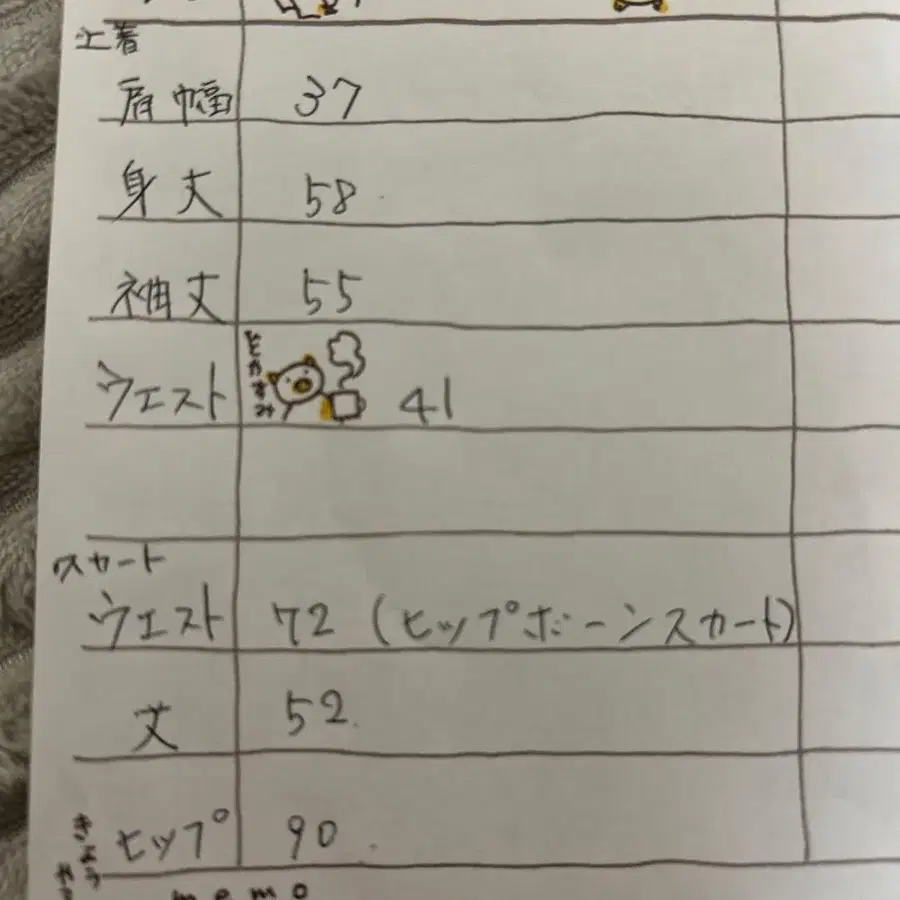 上着
肩幅 37
身丈 58
袖丈 55
ウエスト ひとやすみ 41
スカート
ウエスト 72 (ヒップボーンスカート)
丈 52
ヒップ 90
きょう
memo